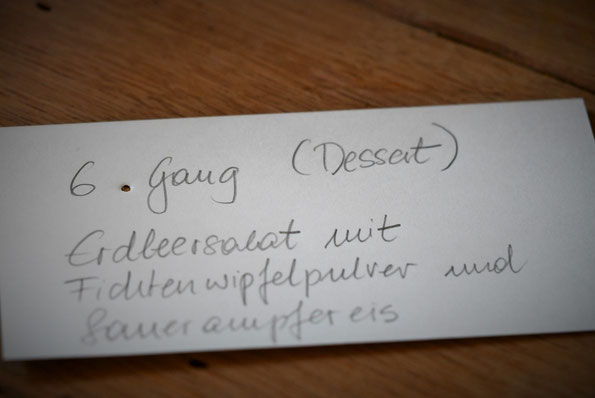 6. Gang (Dessert)
Erdbeersalat mit
Fichtenwipfelpulver und
Sauerampfereis